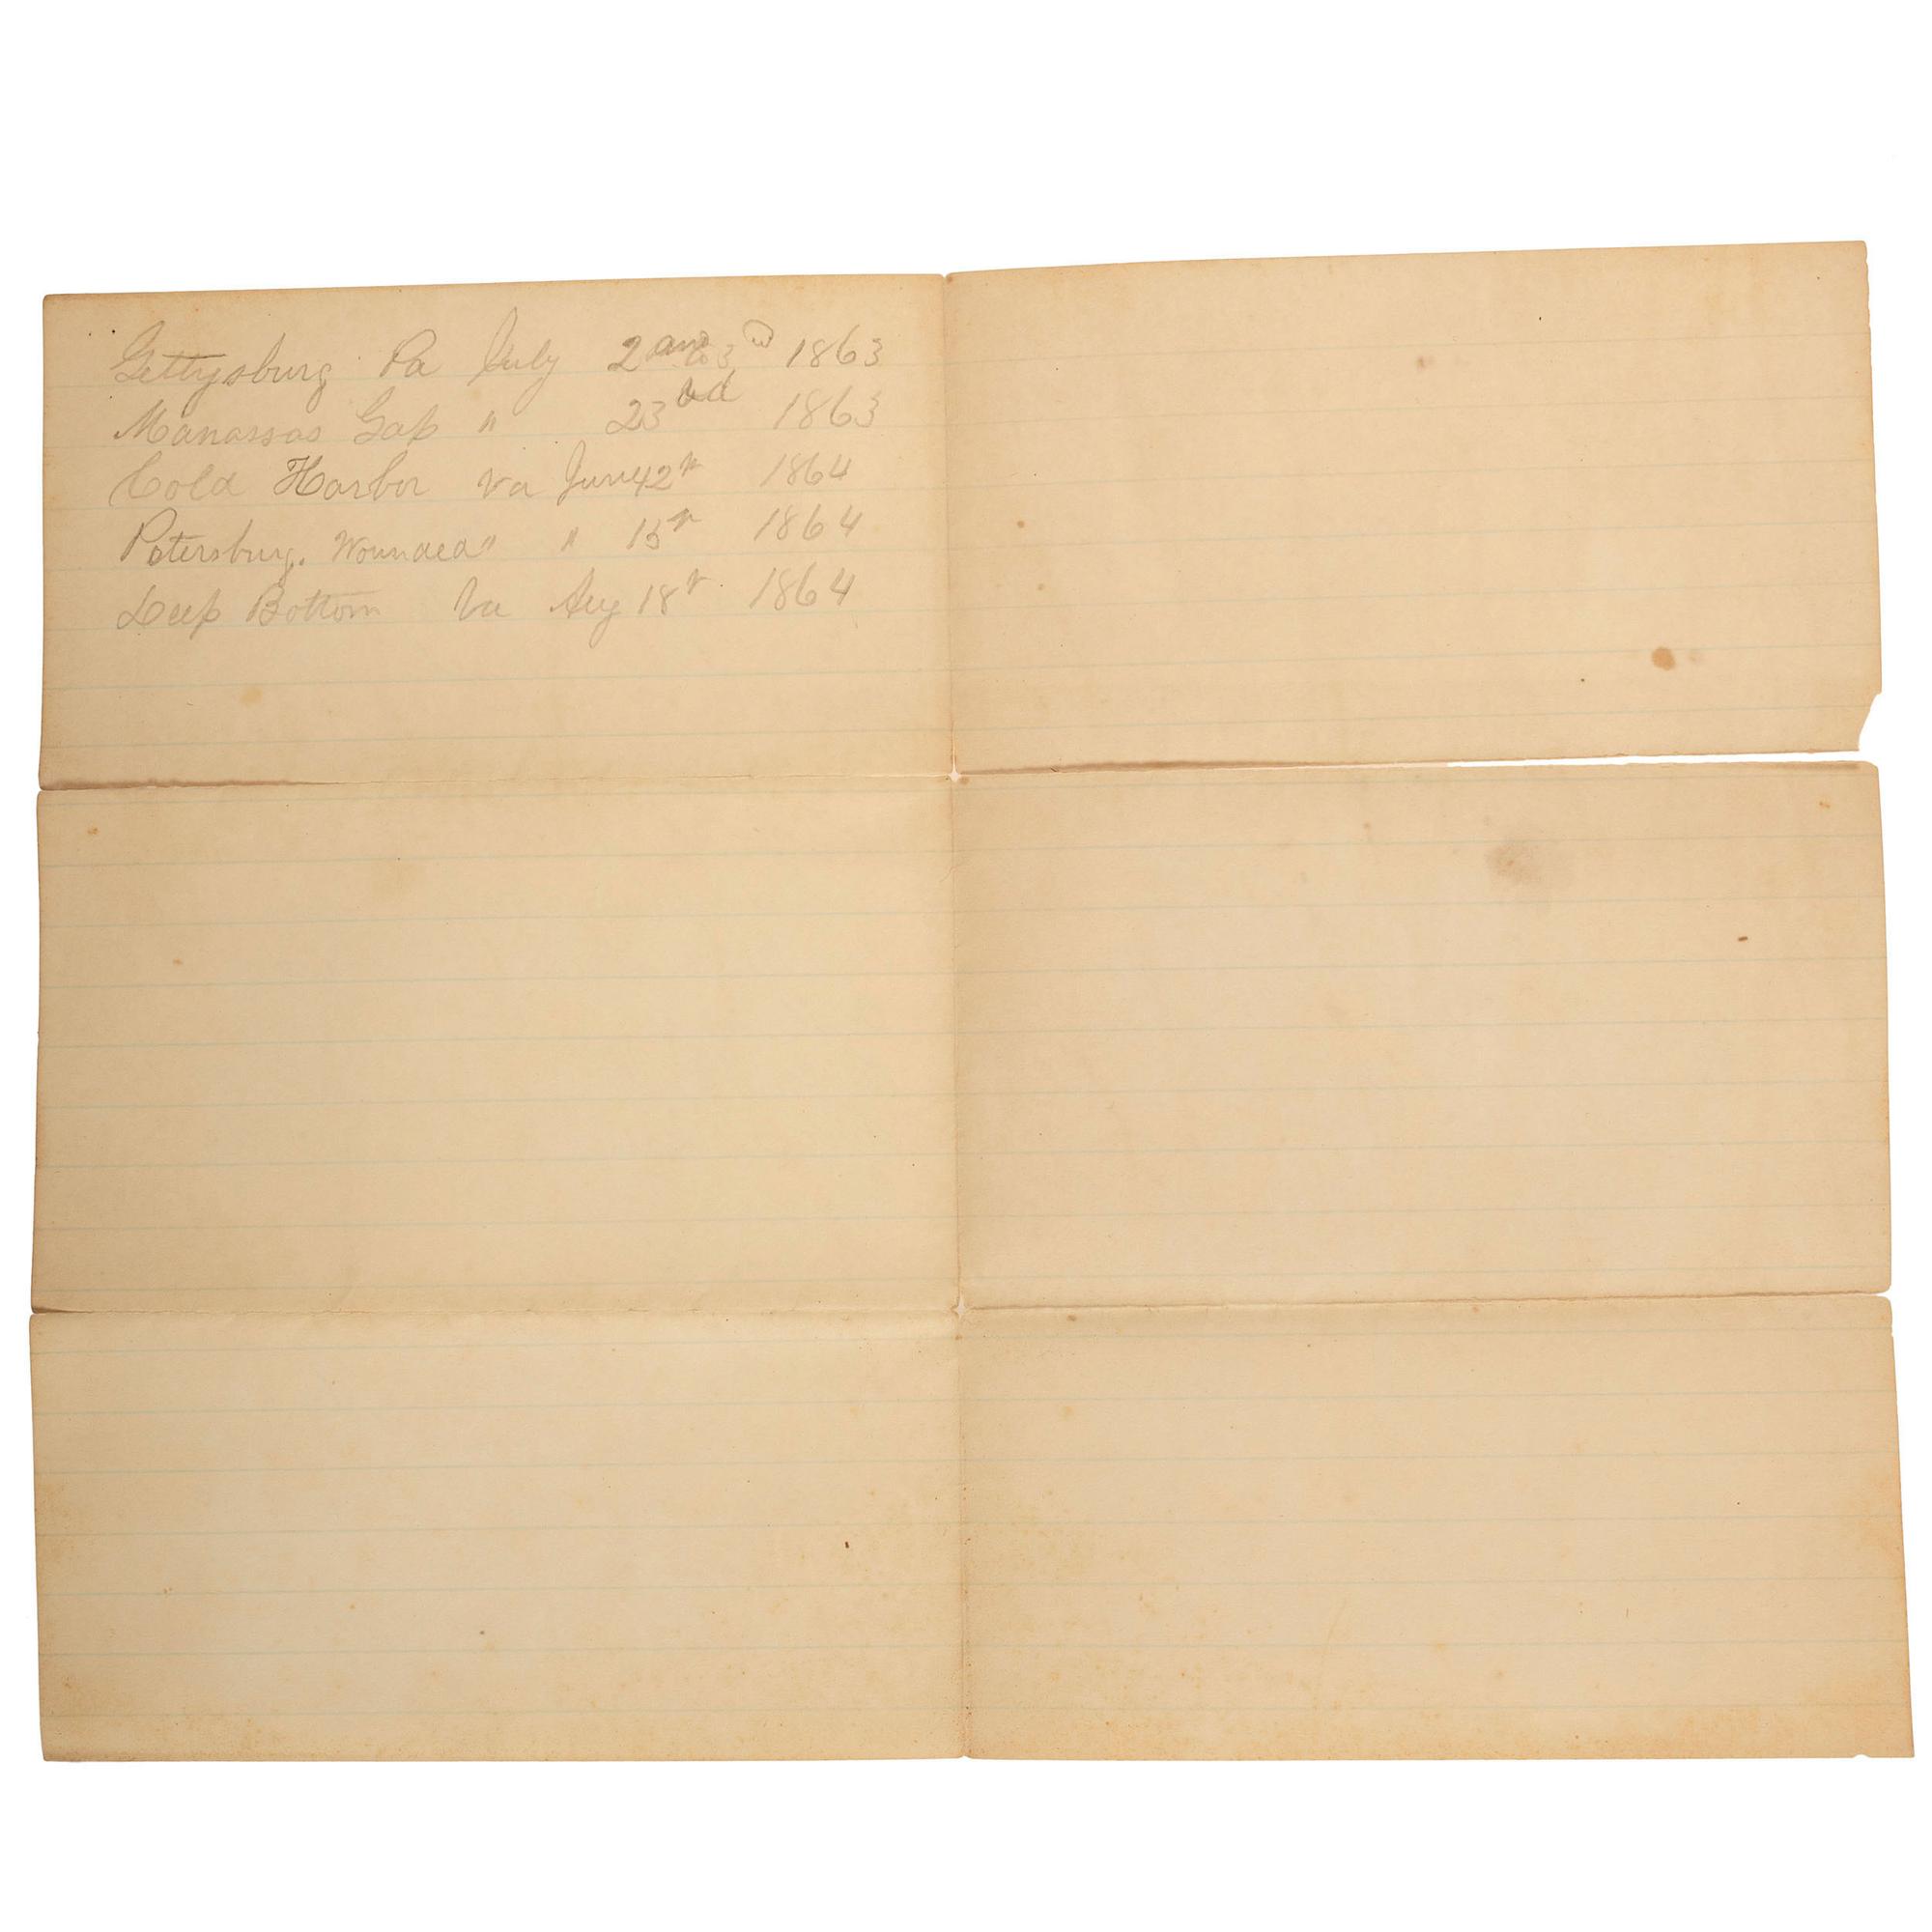 Gettysburg Pa July 2 and 3 1863
Manassas Gap " 23rd 1863
Cold Harbor Va June 1864
Petersburg. Wounded " " 15 1864
Deep Bottom Va Aug 18 1864